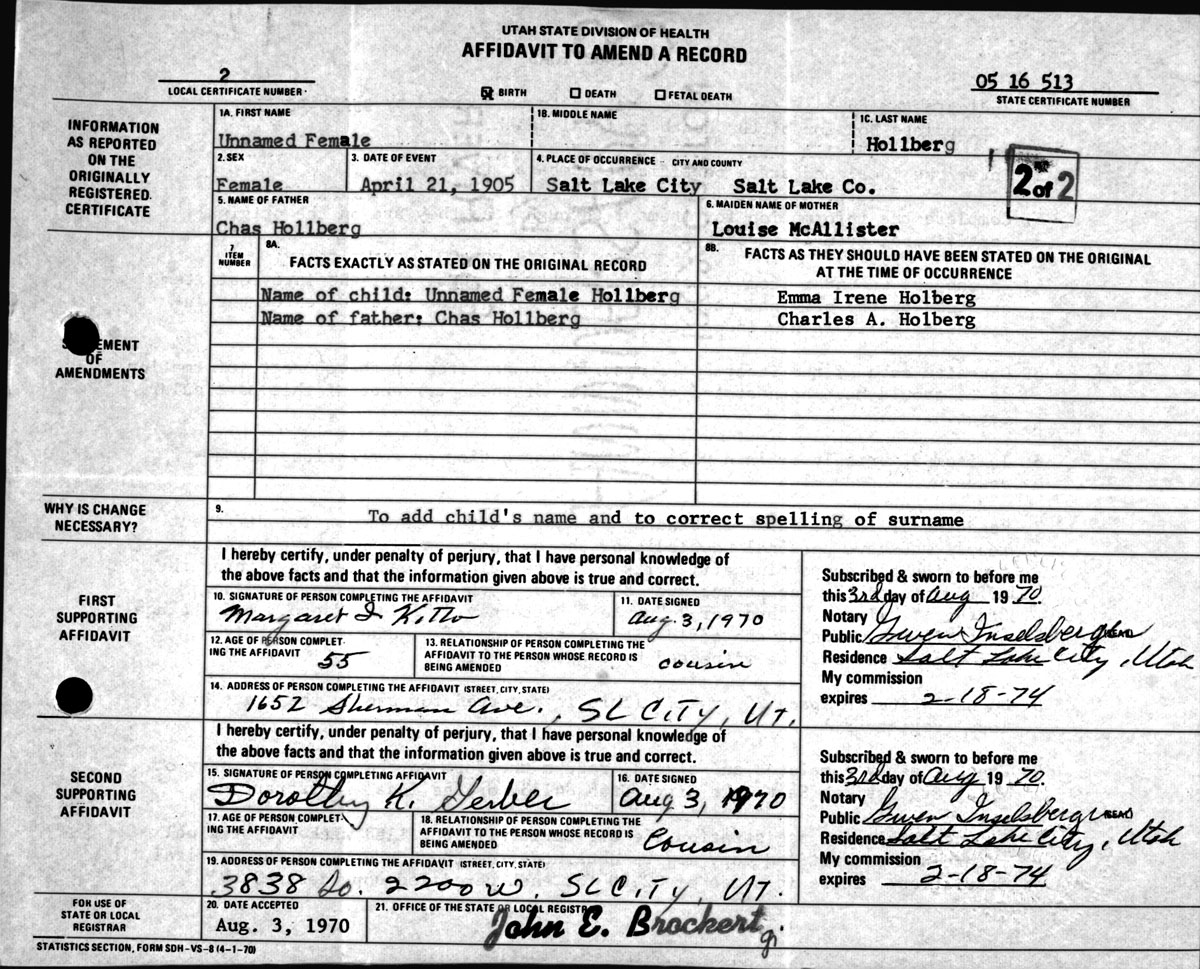 UTAH STATE DIVISION OF HEALTH
AFFIDAVIT TO AMEND A RECORD
2
LOCAL CERTIFICATE NUMBER
☒ BIRTH ☐ DEATH ☐ FETAL DEATH
05 16 513
STATE CERTIFICATE NUMBER
INFORMATION
AS REPORTED
ON THE
ORIGINALLY
REGISTERED
CERTIFICATE
1A. FIRST NAME
Unnamed Female
1B. MIDDLE NAME
1C. LAST NAME
Hollberg
2. SEX
Female
3. DATE OF EVENT
April 21, 1905
4. PLACE OF OCCURRENCE - CITY AND COUNTY
Salt Lake City Salt Lake Co.
2 of 2
5. NAME OF FATHER
Chas Hollberg
6. MAIDEN NAME OF MOTHER
Louise McAllister
7
ITEM
NUMBER
8A.
FACTS EXACTLY AS STATED ON THE ORIGINAL RECORD
8B.
FACTS AS THEY SHOULD HAVE BEEN STATED ON THE ORIGINAL
AT THE TIME OF OCCURRENCE
Name of child: Unnamed Female Hollberg
Emma Irene Holberg
Name of father: Chas Hollberg
Charles A. Holberg
EMENT
OF
AMENDMENTS
WHY IS CHANGE
NECESSARY?
9.
To add child's name and to correct spelling of surname
FIRST
SUPPORTING
AFFIDAVIT
I hereby certify, under penalty of perjury, that I have personal knowledge of
the above facts and that the information given above is true and correct.
10. SIGNATURE OF PERSON COMPLETING THE AFFIDAVIT
Margaret I Kitto
11. DATE SIGNED
Aug. 3, 1970
12. AGE OF PERSON COMPLET-
ING THE AFFIDAVIT
55
13. RELATIONSHIP OF PERSON COMPLETING THE
AFFIDAVIT TO THE PERSON WHOSE RECORD IS
BEING AMENDED
cousin
14. ADDRESS OF PERSON COMPLETING THE AFFIDAVIT (STREET, CITY, STATE)
1652 Sherman Ave., SL CITY, UT.
Subscribed & sworn to before me
this 3rd day of Aug 19 70.
Notary
Public Gwen Inselsberg
Residence Salt Lake City, Utah
My commission
expires 2-18-74
SECOND
SUPPORTING
AFFIDAVIT
I hereby certify, under penalty of perjury, that I have personal knowledge of
the above facts and that the information given above is true and correct.
15. SIGNATURE OF PERSON COMPLETING AFFIDAVIT
Dorothy K. Gerber
16. DATE SIGNED
Aug 3, 1970
17. AGE OF PERSON COMPLET-
ING THE AFFIDAVIT
18. RELATIONSHIP OF PERSON COMPLETING THE
AFFIDAVIT TO THE PERSON WHOSE RECORD IS
BEING AMENDED
Cousin
19. ADDRESS OF PERSON COMPLETING THE AFFIDAVIT (STREET, CITY, STATE)
3838 So. 2200 W. SL CITY, UT.
Subscribed & sworn to before me
this 3rd day of Aug 19 70.
Notary
Public Gwen Inselsberg
Residence Salt Lake City, Utah
My commission
expires 2-18-74
FOR USE OF
STATE OR LOCAL
REGISTRAR
20. DATE ACCEPTED
Aug. 3, 1970
21. OFFICE OF THE STATE OR LOCAL REGISTRAR
John E. Brockert
STATISTICS SECTION, FORM SDH-VS-8 (4-1-70)